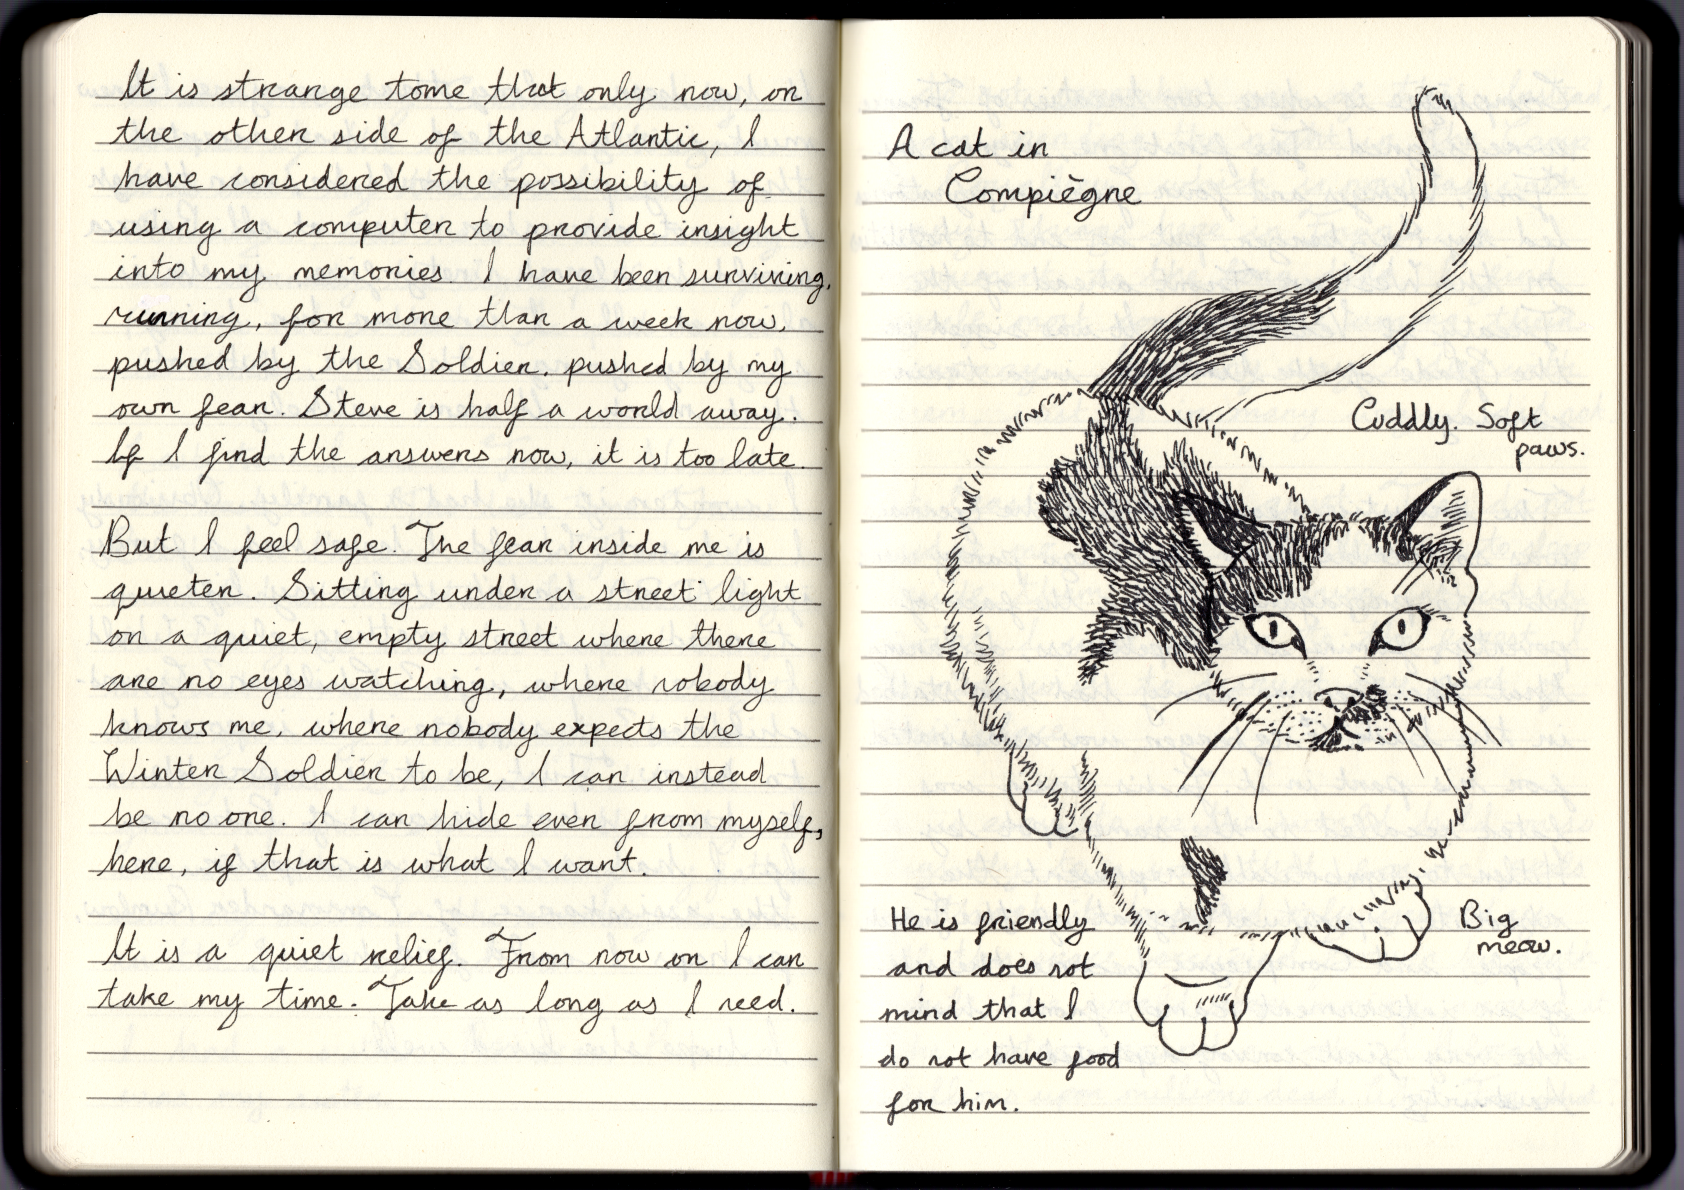 It is strange to me that only now, on
the other side of the Atlantic, I
have considered the possibility of
using a computer to provide insight
into my memories. I have been surviving,
running, for more than a week now,
pushed by the Soldier, pushed by my
own fear. Steve is half a world away.
If I find the answers now, it is too late.
But I feel safe. The fear inside me is
quieter. Sitting under a street light
on a quiet, empty street where there
are no eyes watching, where nobody
knows me, where nobody expects the
Winter Soldier to be, I can instead
be no one. I can hide even from myself,
here, if that is what I want.
It is a quiet relief. From now on I can
take my time. Take as long as I need.
A cat in
Compiègne
Cuddly. Soft
paws.
He is friendly
and does not
mind that I
do not have food
for him.
Big
meow.